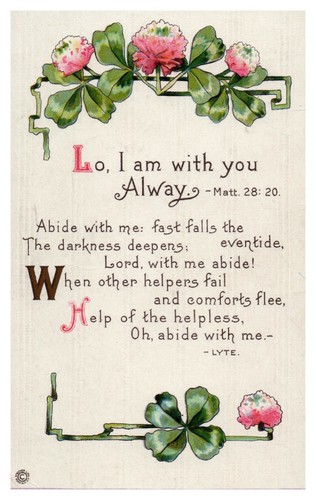 Lo, I am with you
Alway. – Matt. 28: 20.
Abide with me: fast falls the
The darkness deepens; eventide,
Lord, with me abide!
When other helpers fail
and comforts flee,
Help of the helpless,
Oh, abide with me.–
– LYTE.